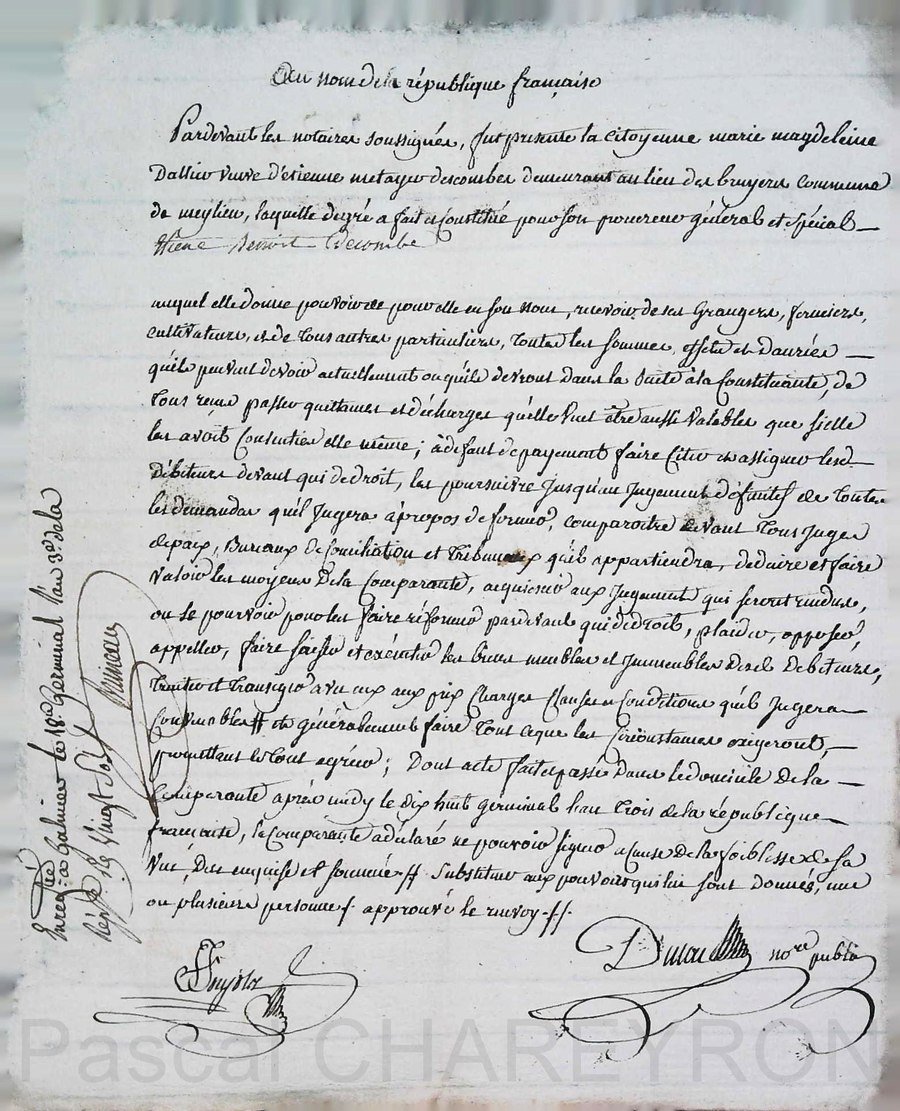 Au nom de la république française
Pardevant les notaires soussignés, fut presente la citoyenne marie magdeleine
Dallier veuve d'etienne metayer descombes demeurant au lieu des bruyeres commune
de meylieu, laquelle degré a fait et constitué pour son procureur général et spécial
etiene Benoit Decombe
auquel elle donne pouvoir de pour elle en son nom, recevoir de ses Grangers, fermiers,
cultivateurs, et de tous autres particuliers, toutes les sommes, effets et danrées
qu'ils peuvent devoir actuellement ou qu'ils devront dans la suite à la Constituante, de
tous reçus passer quittances et décharges qu'elle veut être aussi valables que si elle
les avoit consenties elle même; à défaut de payement faire citer et assigner lesd.
Débiteurs devant qui de droit, les poursuivre jusqu'au jugement définitif de toutes
les demandes qu'il jugera àpropos de former, comparoitre devant tous juges
de paix, Bureaux de conciliation et tribunaux qu'il appartiendra, déduire et faire
valoir les moyens de la comparante, acquiescer aux jugements qui seront rendus,
ou se pourvoir pour les faire réformer pardevant qui de droit, plaider, opposer,
appeller, faire saisir et exécuter les biens meubles et immeubles desd. débiteurs,
traiter et transiger avec eux aux prix charges clauses et conditions qu'il jugera
convenables # et généralement faire tout ce que les circonstances exigeront,
promettant le tout agréer; Dont acte fait et passé dans le domicile de la
comparante après midy le dix huit germinal l'an trois de la république
française, la comparante a déclaré ne pouvoir signer a cause de la foiblesse de sa
vue, Due enquise et sommée # substituer aux pouvoirs qui lui sont donnés, une
ou plusieurs personnes #. approuvé le renvoy #.
Dumas nore public
Enregistré a Galmier le 18e germinal l'an 3e de la
Répe. Rç vingt sols